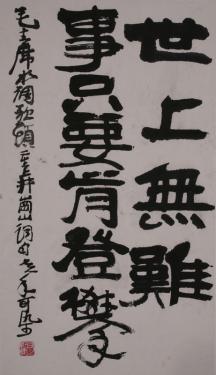 世上無難
事只要肯登攀
毛主席水調歌頭重上井崗山詞句